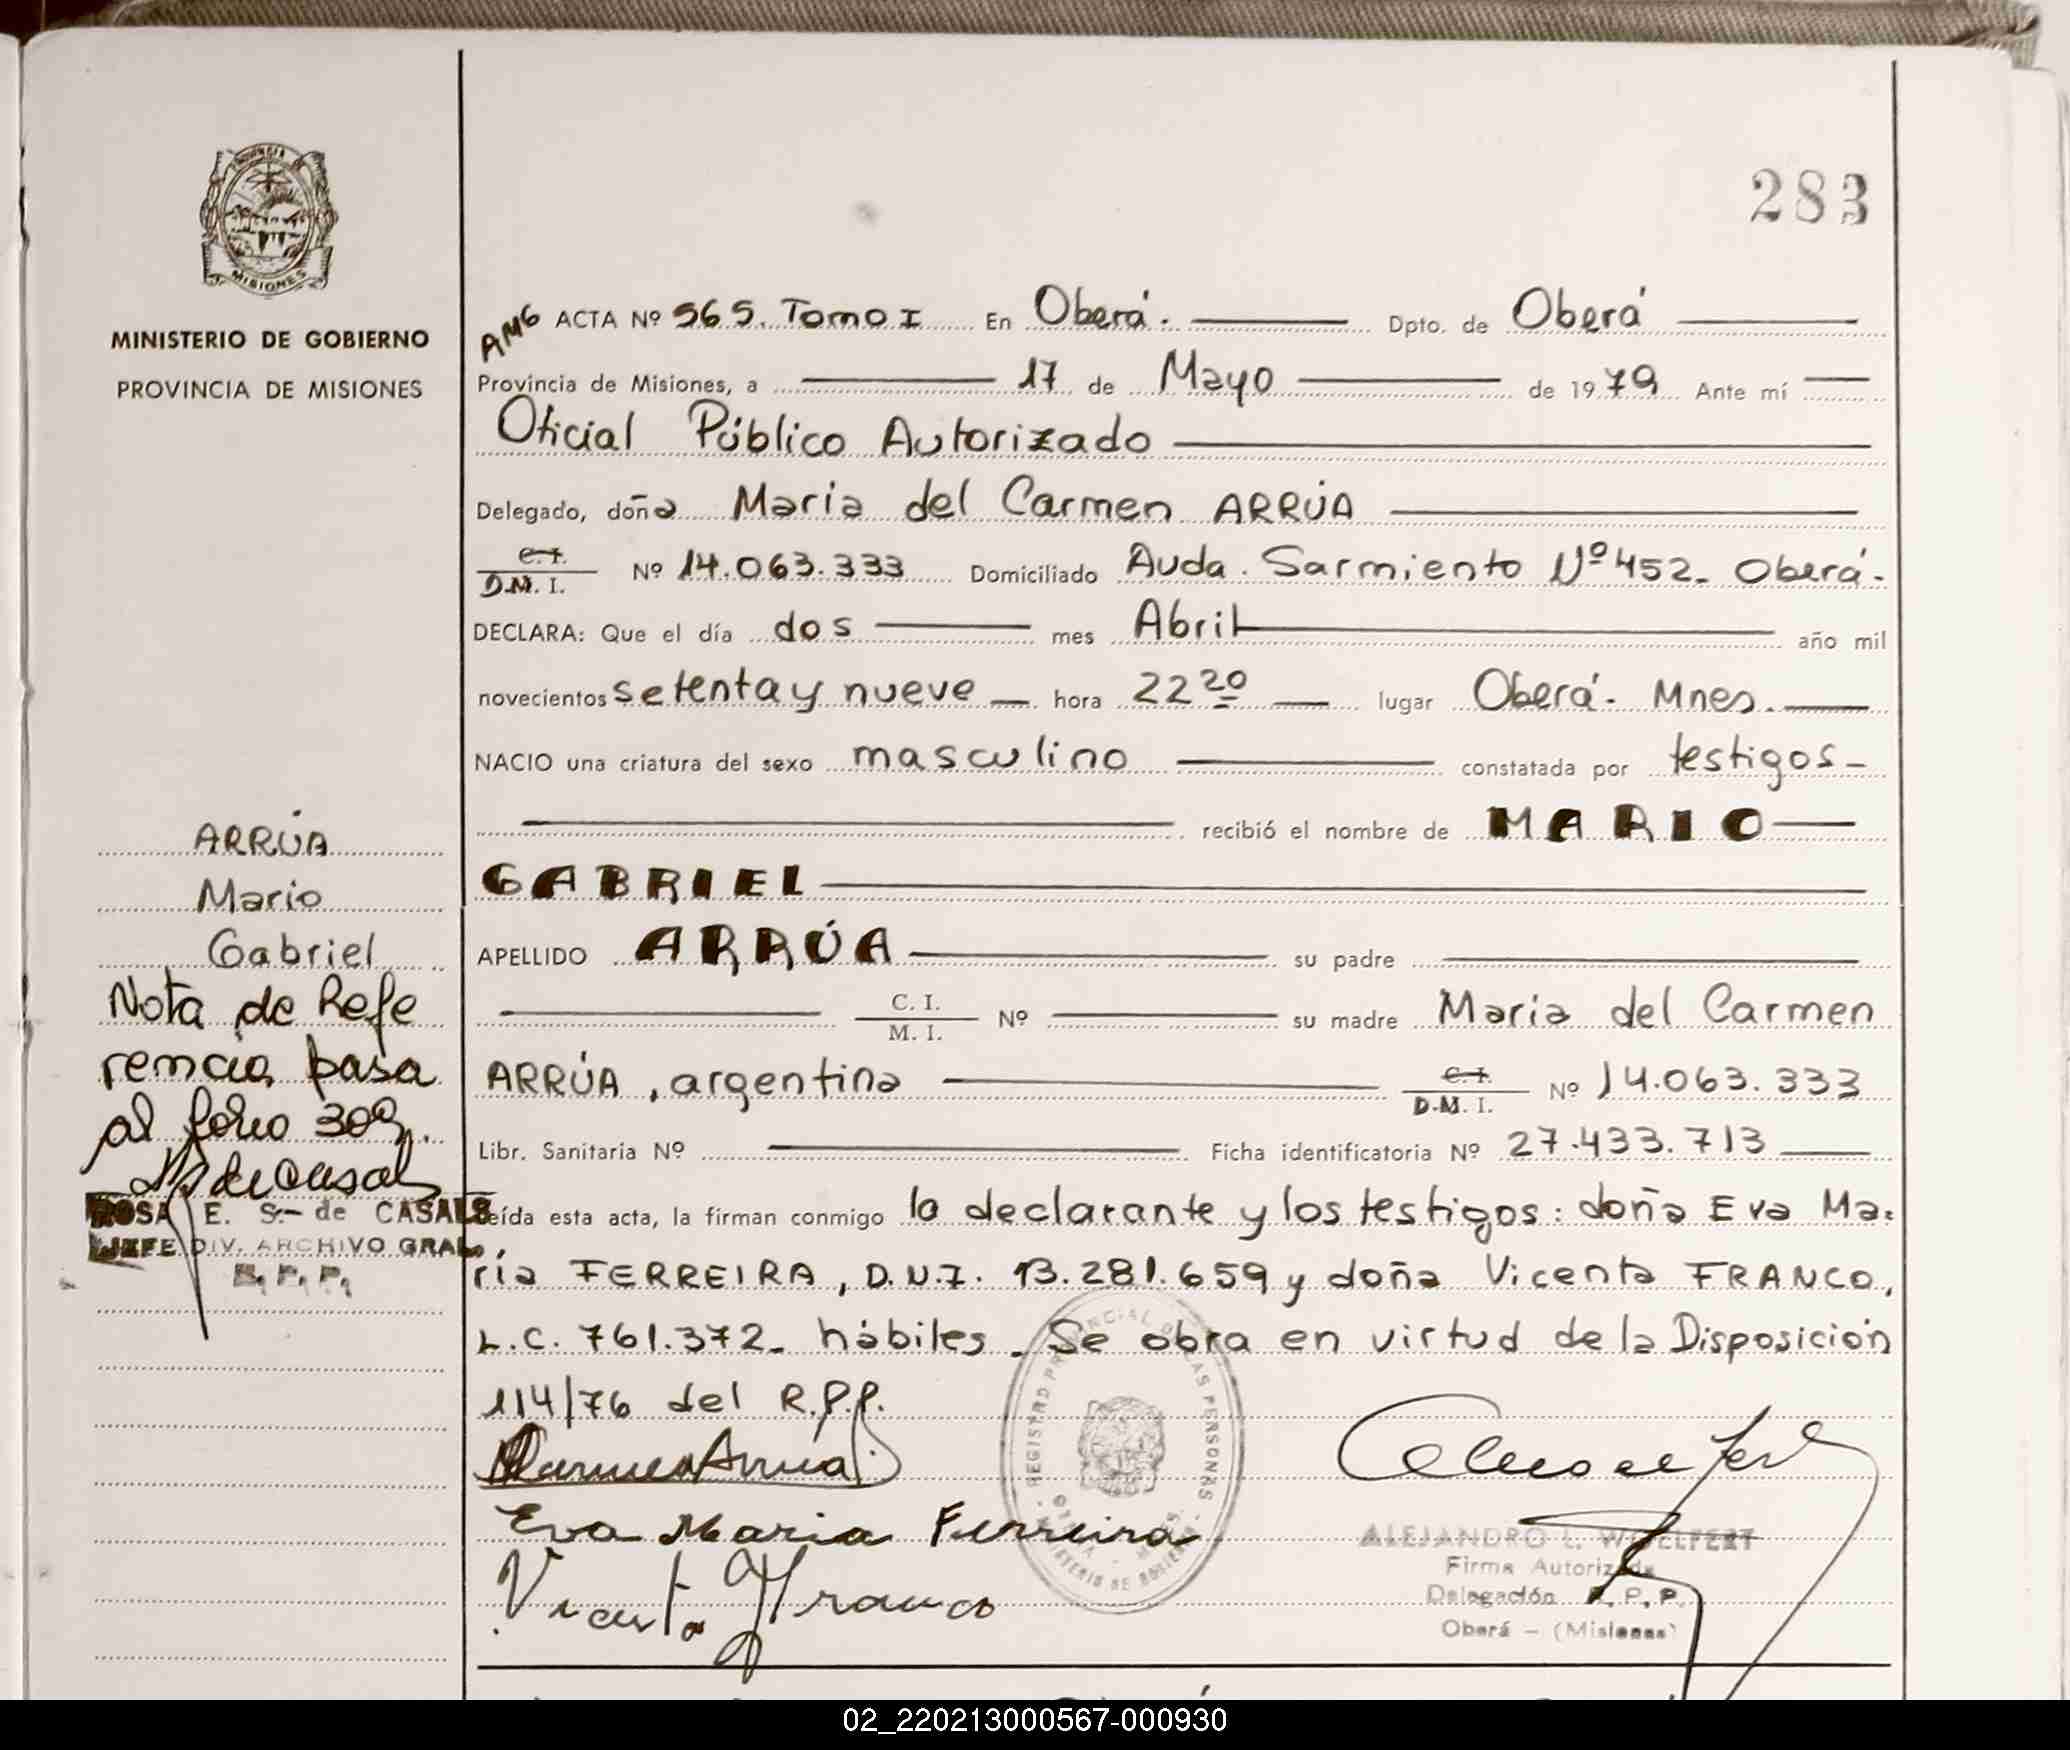 283
PROVINCIA DE
MISIONES
MINISTERIO DE GOBIERNO
PROVINCIA DE MISIONES
AMG ACTA Nº 565. Tomo I En Oberá. Dpto. de Oberá
Provincia de Misiones, a 17 de Mayo de 1979 Ante mí
Oficial Público Autorizado
Delegado, doña Maria del Carmen ARRÚA
C.I.
D.N.I. Nº 14.063.333 Domiciliado Avda. Sarmiento Nº 452. Oberá.
DECLARA: Que el día dos mes Abril año mil
novecientos setenta y nueve hora 22 20 lugar Oberá. Mnes.
NACIO una criatura del sexo masculino constatada por testigos
recibió el nombre de MARIO
GABRIEL
APELLIDO ARRÚA su padre
C. I.
M. I. Nº su madre Maria del Carmen
ARRÚA, argentina C.I.
D.N.I. Nº 14.063.333
Libr. Sanitaria Nº Ficha identificatoria Nº 27.433.713
Leída esta acta, la firman conmigo la declarante y los testigos: doña Eva Ma=
ría FERREIRA, D.N.I. 13.281.659 y doña Vicenta FRANCO,
L.C. 761.372. hábiles. Se obra en virtud de la Disposición
114/76 del R.P.P.
Eva Maria Ferreira
Vicenta Franco
ARRÚA
Mario
Gabriel
Nota de Refe
rencia pasa
al folio 309.
ROSA E. S. de CASALS
JEFE DIV. ARCHIVO GRAL
R. P. P.
REGISTRO PROVINCIAL DE LAS PERSONAS
MINISTERIO DE GOBIERNO
ALEJANDRO L. WOELFERT
Firma Autorizada
Delegación R. P. P.
Oberá - (Misiones)
02_220213000567-000930